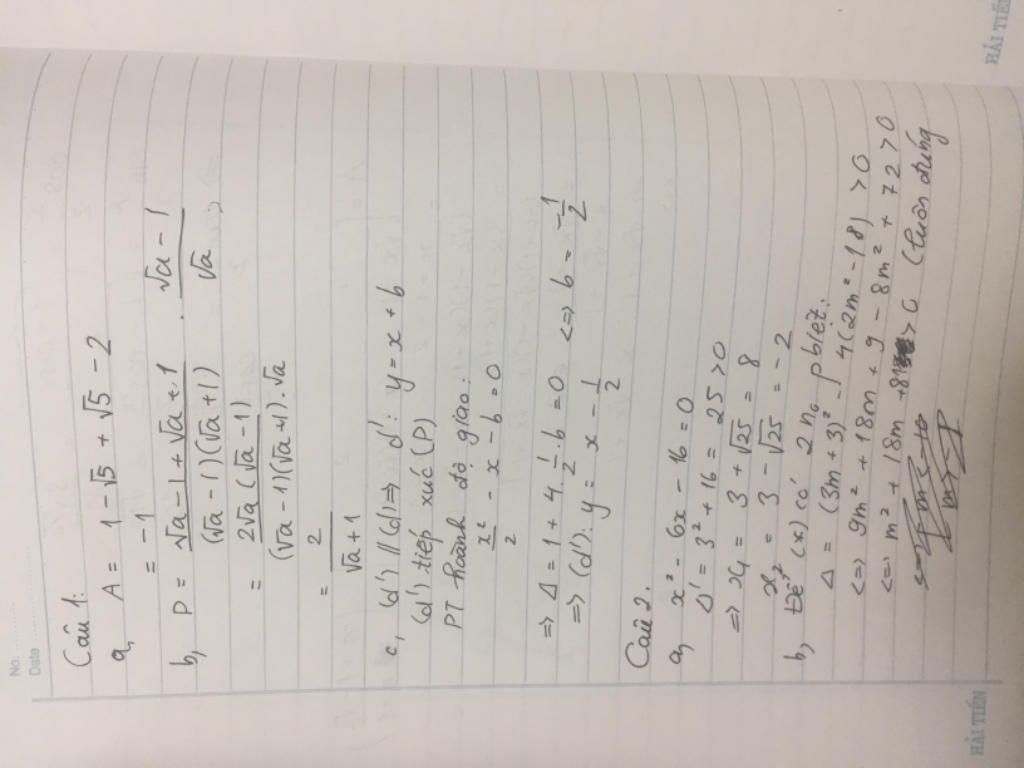 No. ........
Date ........
Câu 1:
a, A = 1 - √5 + √5 - 2
= -1
b, P = (√a - 1 + √a + 1)/((√a - 1)(√a + 1)) . (√a - 1)/√a
= 2√a(√a - 1)/((√a - 1)(√a + 1).√a)
= 2/(√a + 1)
c, (d') // (d) => d': y = x + b
(d') tiếp xúc (P)
PT hoành độ giao:
x²/2 - x - b = 0
=> Δ = 1 + 4.1/2.b = 0 <=> b = -1/2
=> (d'): y = x - 1/2
Câu 2.
a, x² - 6x - 16 = 0
Δ' = 3² + 16 = 25 > 0
=> x₁ = 3 + √25 = 8
x₂ = 3 - √25 = -2
b, Để (x) có 2 n₀ pbiệt:
Δ = (3m + 3)² - 4(2m² - 18) > 0
<=> 9m² + 18m + 9 - 8m² + 72 > 0
<=> m² + 18m + 81 > 0 (luôn đúng
HẢI TIẾN
HẢI TIẾN